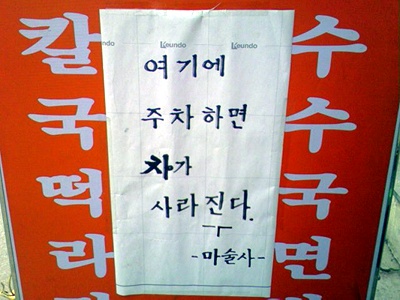 칼 수
국 수
떡 국
라 면
Keundo Keundo
여기에
주차하면
차가
사라진다.
-마술사-